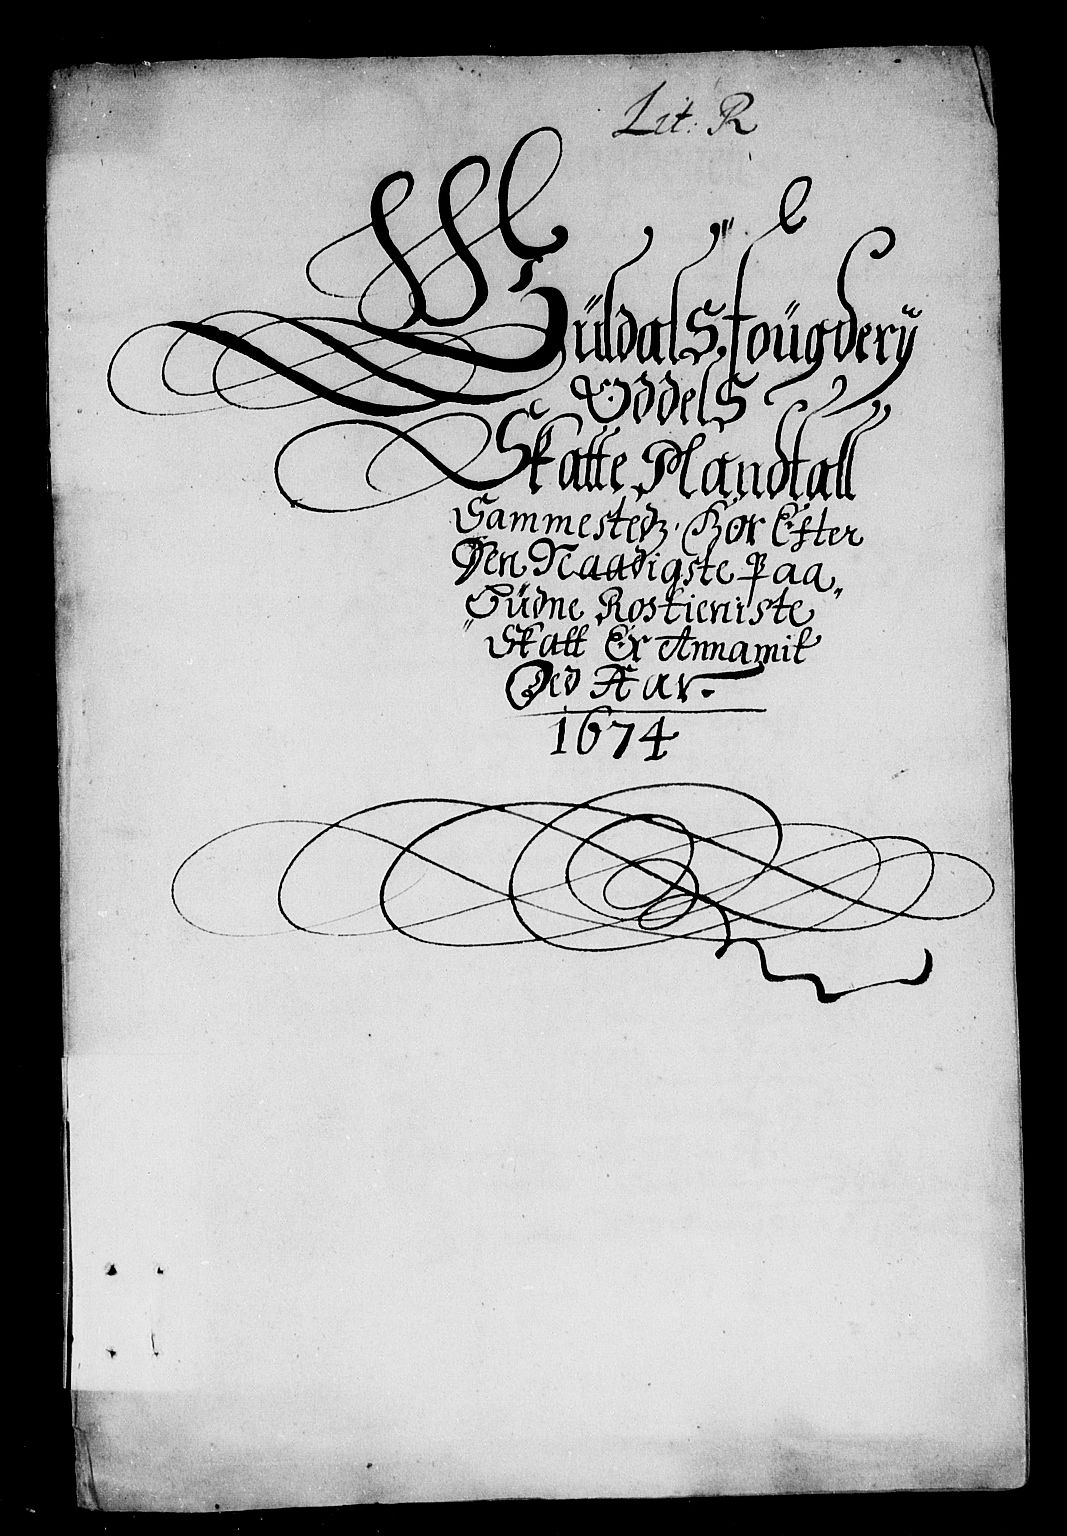 Lit: R
Güldals fougderÿ
Oddels
Skatte Mandtall
Sammestedz. Hor Efter
Den Naadigste Paa
Büdne Rostieniste
Skatt Er Annamit
Ded Aar.
1674